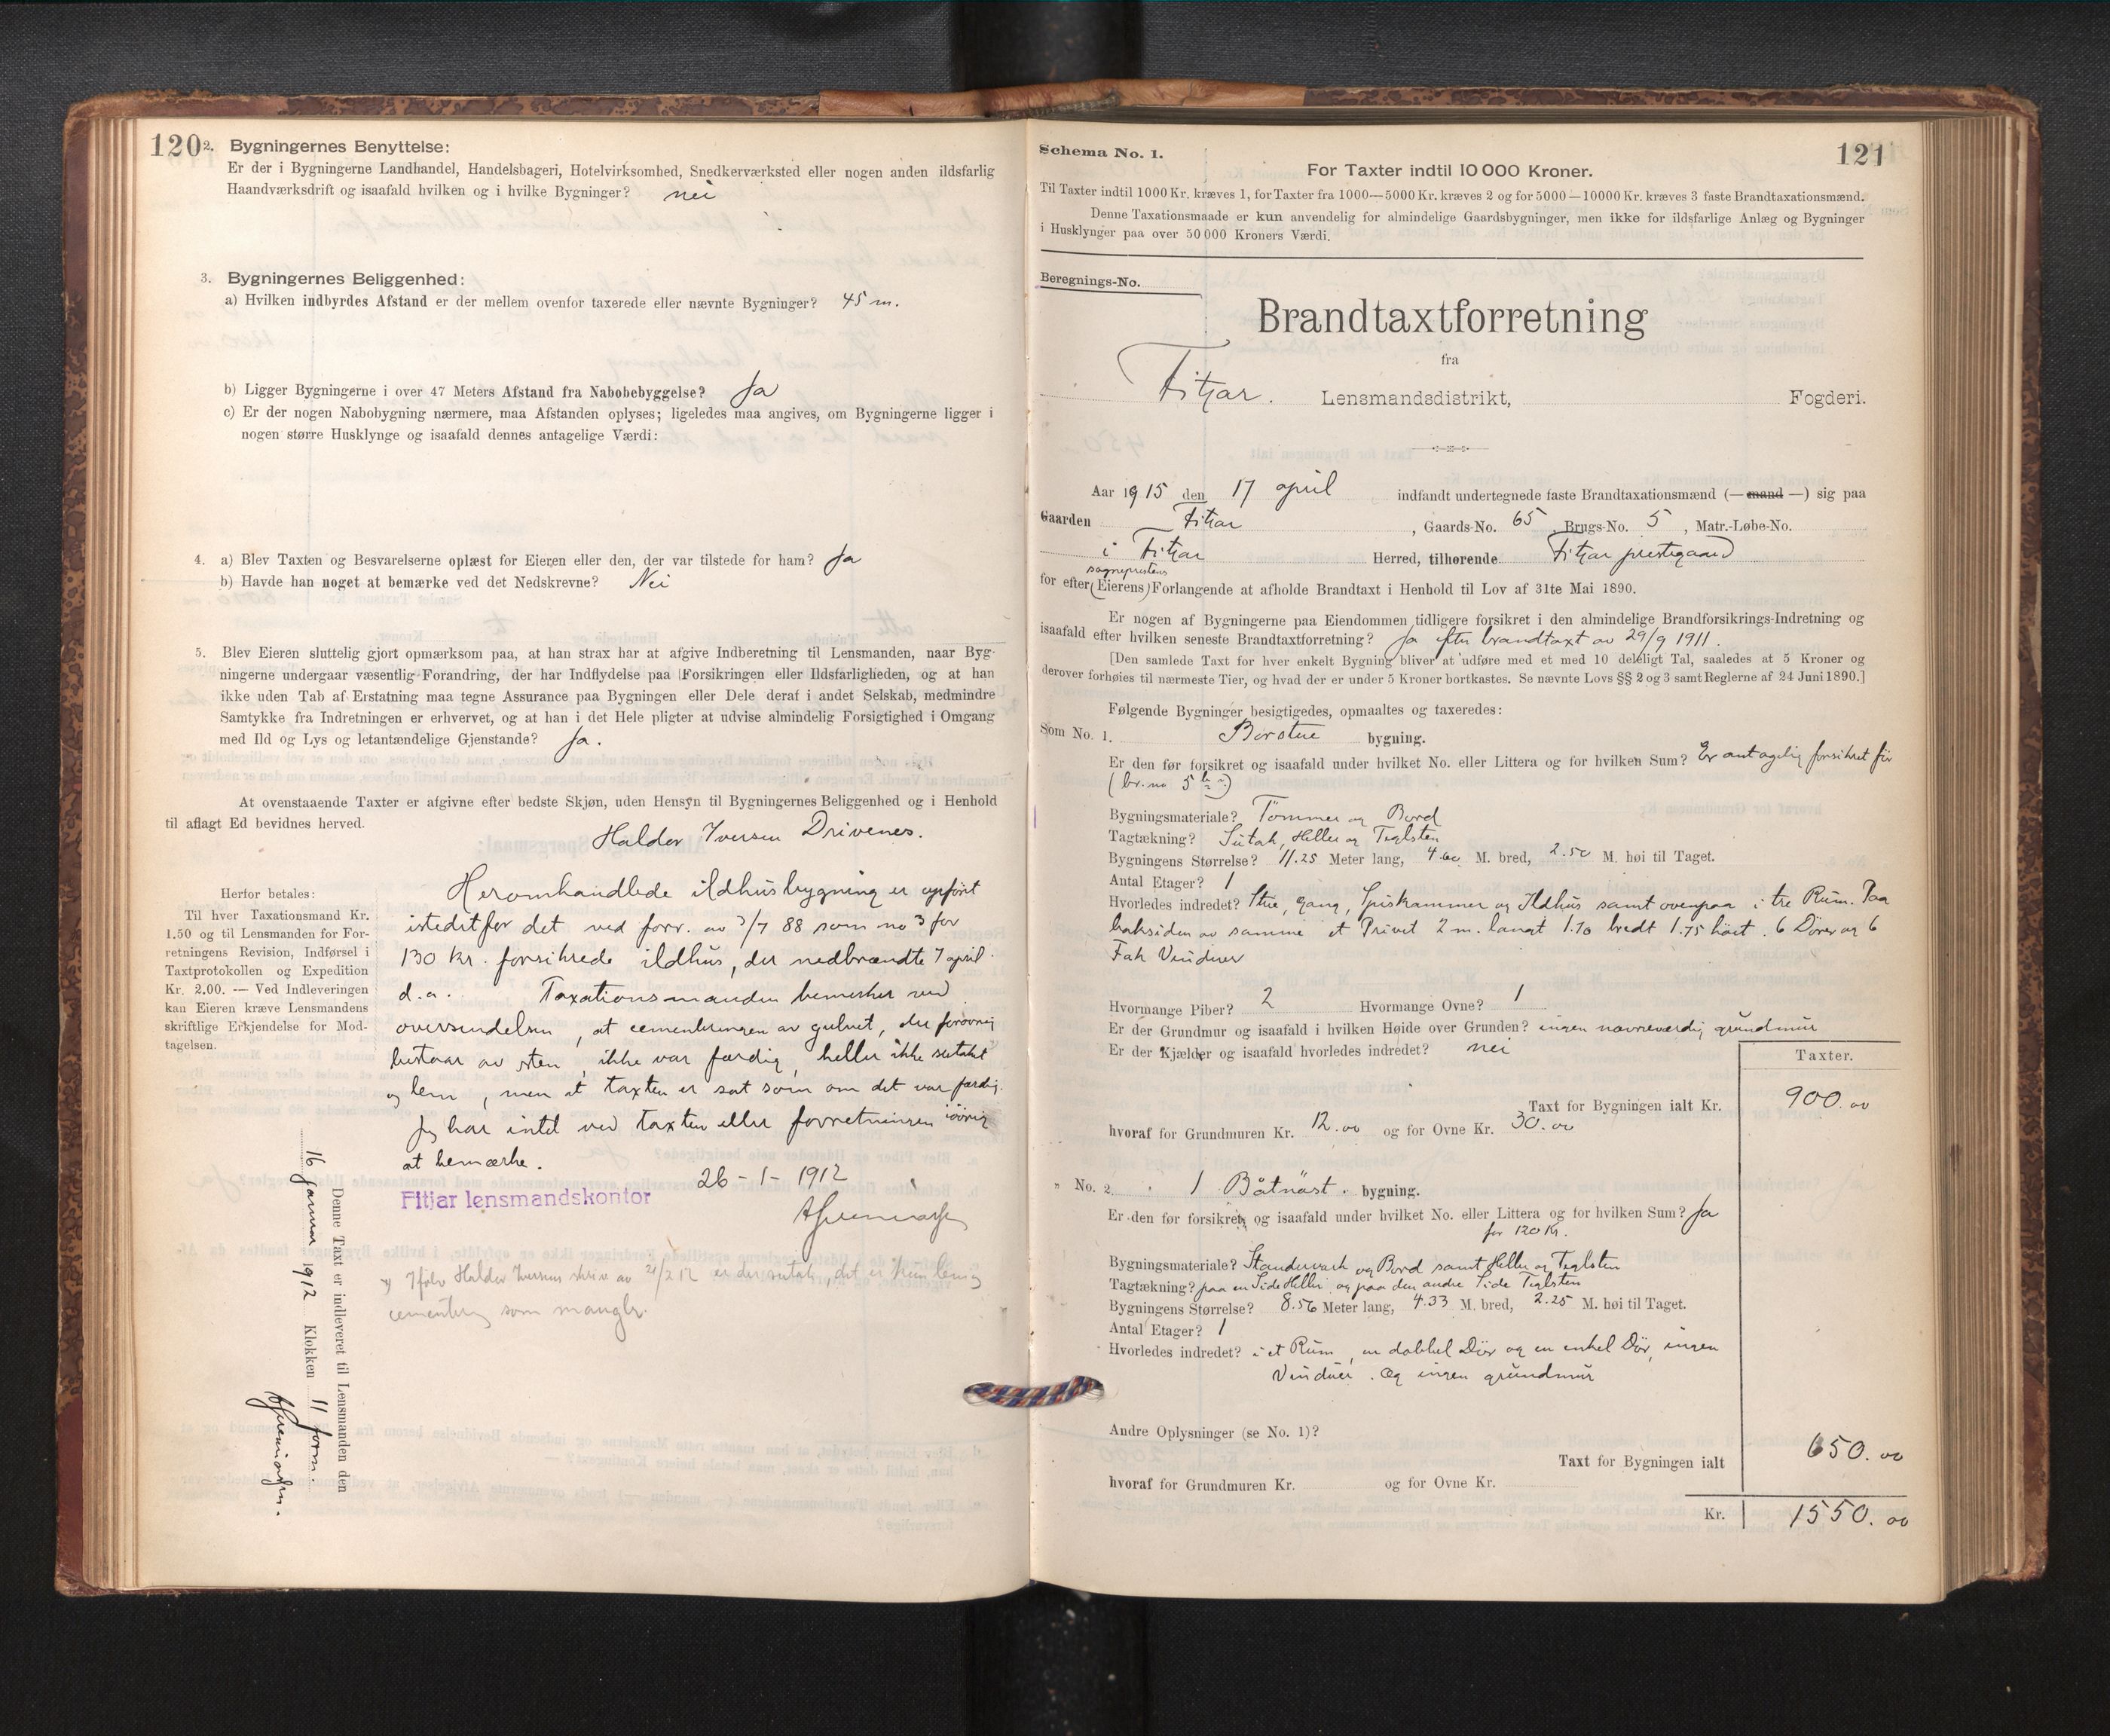 120
2. Bygningernes Benyttelse:
Er der i Bygningerne Landhandel, Handelsbageri, Hotelvirksomhed, Snedkerværksted eller nogen anden ildsfarlig
Haandværksdrift og isaafald hvilken og i hvilke Bygninger? nei
3. Bygningernes Beliggenhed:
a) Hvilken indbyrdes Afstand er der mellem ovenfor taxerede eller nævnte Bygninger? 45 m.
b) Ligger Bygningerne i over 47 Meters Afstand fra Nabobebyggelse? Ja
c) Er der nogen Nabobygning nærmere, maa Afstanden oplyses; ligeledes maa angives, om Bygningerne ligger i
nogen større Husklynge og isaafald dennes antagelige Værdi:
4. a) Blev Taxten og Besvarelserne oplæst for Eieren eller den, der var tilstede for ham? Ja
b) Havde han noget at bemærke ved det Nedskrevne? Nei
5. Blev Eieren sluttelig gjort opmærksom paa, at han strax har at afgive Indberetning til Lensmanden, naar Byg-
ningerne undergaar væsentlig Forandring, der har Indflydelse paa Forsikringen eller Ildsfarligheden, og at han
ikke uden Tab af Erstatning maa tegne Assurance paa Bygningen eller Dele deraf i andet Selskab, medmindre
Samtykke fra Indretningen er erhvervet, og at han i det Hele pligter at udvise almindelig Forsigtighed i Omgang
med Ild og Lys og letantændelige Gjenstande? Ja.
At ovenstaaende Taxter er afgivne efter bedste Skjøn, uden Hensyn til Bygningernes Beliggenhed og i Henhold
til aflagt Ed bevidnes herved.
Haldor Iversen Drivenes.
Herfor betales:
Til hver Taxationsmand Kr.
1.50 og til Lensmanden for For-
retningens Revision, Indførsel i
Taxtprotokollen og Expedition
Kr. 2.00. — Ved Indleveringen
kan Eieren kræve Lensmandens
skriftlige Erkjendelse for Mod-
tagelsen.
Heromhandlede ildhusbygning er opført
istedetfor det ved forr. av 3/7 88 som no 3 for
130 kr. forsikrede ildhus, der nedbrændte 7 april
d.a. Taxationsmanden bemerker ved
oversendelsen, at cementeringen av gulvet, der forøvrig
bestaar av sten, ikke var færdig, heller ikke sutaket
og lem, men at taxten er sat som om det var færdig.
Jeg har intet ved taxten eller forretningen iøvrig
at bemærke.
26-1-1912
Fitjar lensmandskontor
x) Ifølge Haldor Iversens skriv av 21/2 12 er der sutak, det er kun lem og
cementering som mangler.
Denne Taxt er indleveret til Lensmanden den
16 januar 1912 Klokken 11 form.
121
Schema No. 1.
For Taxter indtil 10 000 Kroner.
Til Taxter indtil 1000 Kr. kræves 1, for Taxter fra 1000—5000 Kr. kræves 2 og for 5000—10000 Kr. kræves 3 faste Brandtaxationsmænd.
Denne Taxationsmaade er kun anvendelig for almindelige Gaardsbygninger, men ikke for ildsfarlige Anlæg og Bygninger
i Husklynger paa over 50 000 Kroners Værdi.
Beregnings-No.
Brandtaxtforretning
fra
Fitjar. Lensmandsdistrikt, Fogderi.
Aar 1915 den 17 april indfandt undertegnede faste Brandtaxationsmænd (—mand—) sig paa
Gaarden Fitjar, Gaards-No. 65 Brugs-No. 5, Matr.-Løbe-No.
i Fitjar Herred, tilhørende Fitjar prestegaard
sogneprestens
for efter (Eierens) Forlangende at afholde Brandtaxt i Henhold til Lov af 31te Mai 1890.
Er nogen af Bygningerne paa Eiendommen tidligere forsikret i den almindelige Brandforsikrings-Indretning og
isaafald efter hvilken seneste Brandtaxtforretning? Ja efter brandtaxt av 29/9 1911.
[Den samlede Taxt for hver enkelt Bygning bliver at udføre med et med 10 deleligt Tal, saaledes at 5 Kroner og
derover forhøies til nærmeste Tier, og hvad der er under 5 Kroner bortkastes. Se nævnte Lovs §§ 2 og 3 samt Reglerne af 24 Juni 1890.]
Følgende Bygninger besigtigedes, opmaaltes og taxeredes:
Som No. 1. Borstue bygning.
Er den før forsikret og isaafald under hvilket No. eller Littera og for hvilken Sum? Er antagelig forsikret før
(br.no 5
Bygningsmateriale? Tömmer og Bord
Tagtækning? Sutak, Heller og Teglsten
Bygningens Størrelse? 11.25 Meter lang, 4.60 M. bred, 2.50 M. høi til Taget.
Antal Etager? 1
Hvorledes indredet? Stue, gang, Spiskammer og Ildhus samt ovenpaa i tre Rum. Paa
baksiden av samme et Privet 2 m. langt 1.70 bredt 1.75 höit. 6 Dörer og 6
Fak Vinduer
Hvormange Piber? 2 Hvormange Ovne? 1
Er der Grundmur og isaafald i hvilken Høide over Grunden? ingen navneværdig grundmur
Er der Kjælder og isaafald hvorledes indredet? nei
Taxter.
Taxt for Bygningen ialt Kr. 900.00
hvoraf for Grundmuren Kr. 12.00 og for Ovne Kr. 30.00
" No. 2. 1 Båtnöst. bygning.
Er den før forsikret, og isaafald under hvilket No. eller Littera og for hvilken Sum? Ja
for 120 Kr.
Bygningsmateriale? Standerverk og Bord samt Heller og Teglsten
Tagtækning? paa en Side Heller og paa den andre Side Teglsten
Bygningens Størrelse? 8.56 Meter lang, 4.33 M. bred, 2.25 M. høi til Taget.
Antal Etager? 1
Hvorledes indredet? i et Rum, en dobbel Dör og en enkel Dör, ingen
Vinduer. Og ingen grundmur
Andre Oplysninger (se No. 1)?
Taxt for Bygningen ialt 650.00
hvoraf for Grundmuren Kr. og for Ovne Kr.
Kr. 1550.00